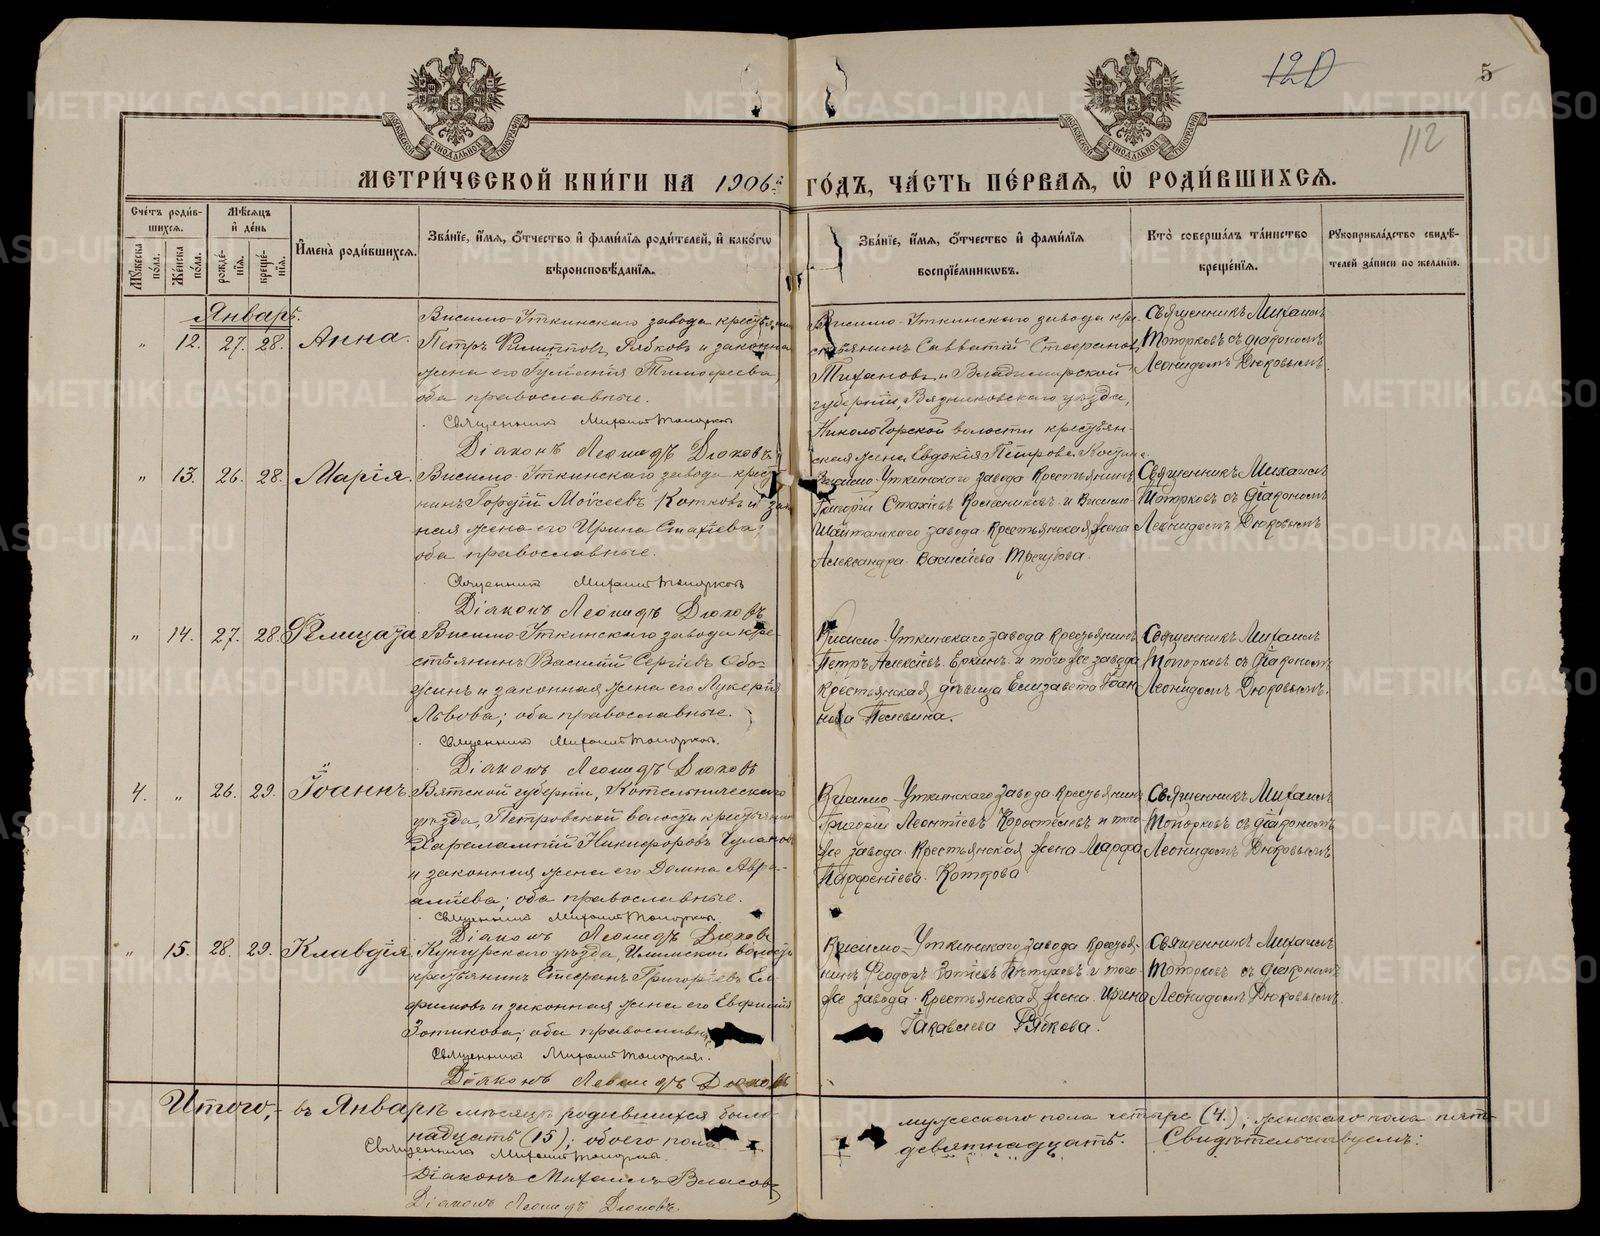 120
5
112
МЕТРИ́ЧЕСКОЙ КНИ́ГИ НА 1906й ГО́ДЪ, ЧА́СТЬ ПЕ́РВАЯ, Ѿ РОДИ́ВШИХСЯ.
Сче́тъ роди́вшихся.
Му́жеска по́ла.
Же́нска по́ла.
Мѣ́сяцъ и҆ де́нь
рожде́нїя.
креще́нїя.
И҆мена̀ роди́вшихся.
Зва́нїе, и҆́мя, ѻ҆́тчество и҆ фами́лїя роди́телей, и҆ како́гѡ вѣроисповѣ́данїя.
Зва́нїе, и҆́мя, ѻ҆́тчество и҆ фами́лїя воспрїе́мникѡвъ.
Кто̀ соверша́лъ та́инство креще́нїя.
Рꙋкоприкла́дство свидѣ́телей за́писи по жела́нїю.
Январь.
" 12. 27. 28. Анна.
Висимо-Уткинскаго завода крестьянинъ
Петръ Филипповъ Рябковъ и законная
жена его Гуліанія Тимофеева,
оба православные.
Священникъ Михаилъ Топорковъ
Діаконъ Леонидъ Дюковъ
Висимо-Уткинскаго завода кре-
стьянинъ Савватій Стефановъ
Тихановъ и Владимірской
губерніи, Вязниковскаго уѣзда,
НиколоГорской волости крестьян-
ская жена Евдокія Петрова
Священникъ Михаилъ
Топорковъ съ діакономъ
Леонидомъ Дюковымъ.
" 13. 26. 28. Марія.
Висимо-Уткинскаго завода крестья-
нинъ Гордій Моисеевъ Котковъ и закон-
ная жена его Ирина Стахіева;
оба православные.
Священникъ Михаилъ Топорковъ
Діаконъ Леонидъ Дюковъ
Висимо-Уткинскаго завода Крестьянинъ
Григорій Стахіевъ Романиковъ и Висимо-
Шайтанскаго завода Крестьянская жена
Александра Василіева Трегубова.
Священникъ Михаилъ
Топорковъ съ Діакономъ
Леонидомъ Дюковымъ
" 14. 27. 28. Фелицата
Висимо-Уткинскаго завода кре-
стьянинъ Василій Сергіевъ Обо-
жинъ и законная жена его Лукерія
Львова; оба православные.
Священникъ Михаилъ Топорковъ.
Діаконъ Леонидъ Дюковъ
Висимо-Уткинскаго завода Крестьянинъ
Петръ Алексіевъ Еркинъ и того же завода
Крестьянская дѣвица Елизавета Іоан-
нова Пелевина.
Священникъ Михаилъ
Топорковъ съ Діакономъ
Леонидомъ Дюковымъ.
4. " 26. 29. Іоаннъ.
Вятской губерніи, Котельническаго
уѣзда, Петровской волости крестьянинъ
Харалампій Никифоровъ
и законная жена его Домна Авра-
аміева; оба православные.
Священникъ Михаилъ Топорковъ
Діаконъ Леонидъ Дюковъ
Висимо-Уткинскаго завода Крестьянинъ
Григорій Леонтіевъ Коростелевъ и того
же завода Крестьянская жена Марфа
Парфеніева Коткова
Священникъ Михаилъ
Топорковъ съ діакономъ
Леонидомъ Дюковымъ
" 15. 28. 29. Клавдія.
Кунгурскаго уѣзда, Илимской волости
крестьянинъ Стефанъ Григоріевъ Ел-
фимовъ и законная жена его Евфимія
Зотикова; оба православные
Священникъ Михаилъ Топорковъ.
Діаконъ Леонидъ Дюковъ
Висимо-Уткинскаго завода Крестья-
нинъ Феодоръ Зотіевъ Пѣтуховъ и того-
же завода Крестьянская жена Ирина
Рябкова.
Священникъ Михаилъ
Топорковъ съ діакономъ
Леонидомъ Дюковымъ
Итого, въ Январѣ мѣсяцѣ родившихся было: мужескаго пола четыре (4.); женскаго пола пят-
надцать (15); обоего пола девятнадцать. Свидѣтельствуемъ:
Священникъ Михаилъ Топорковъ.
Діаконъ Михаилъ Власовъ
Діаконъ Леонидъ Дюковъ.